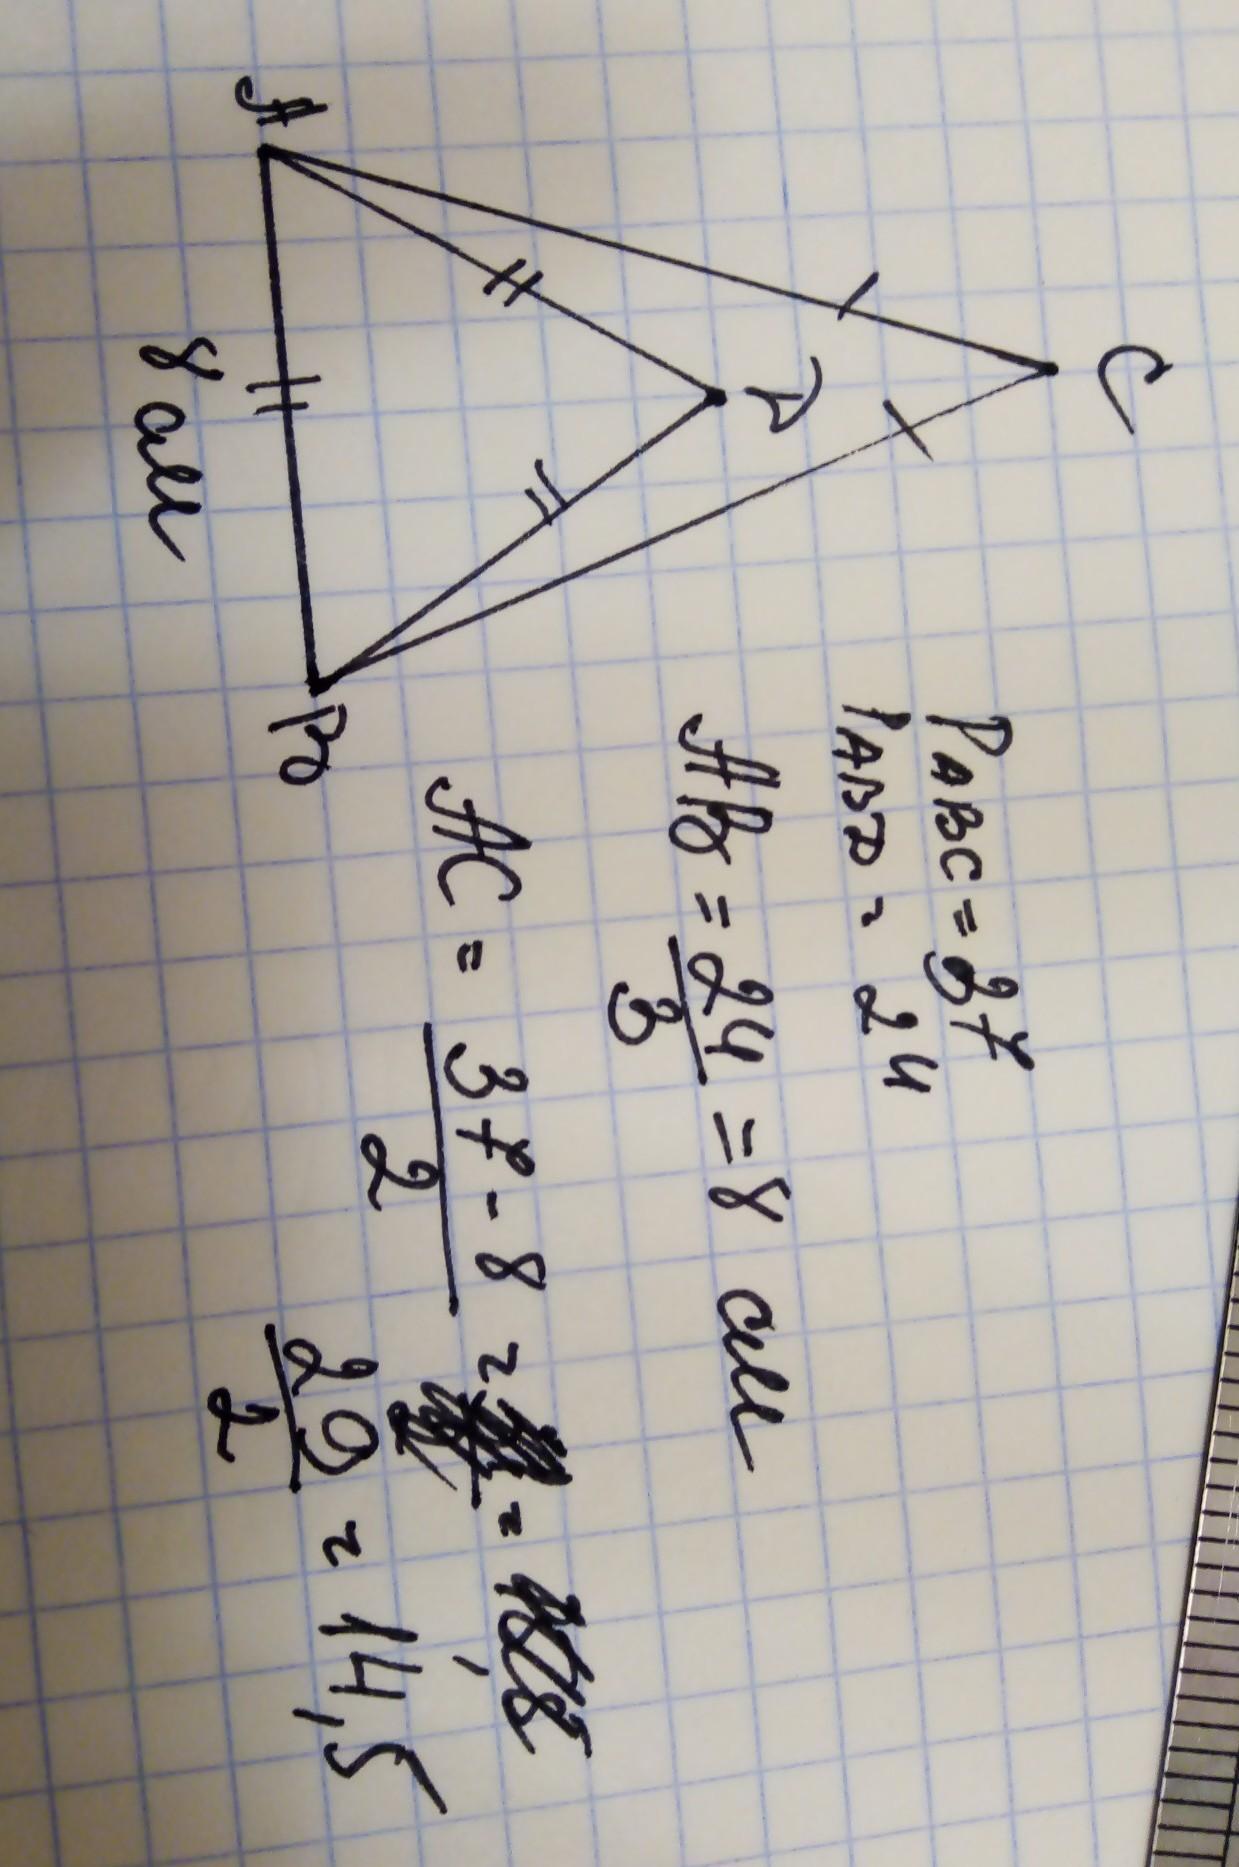 C
A
D
B
8 см
P ABC = 37
P ABD = 24
AB = 24/3 = 8 см
AC = 37-8/2 = =
29/2 = 14,5